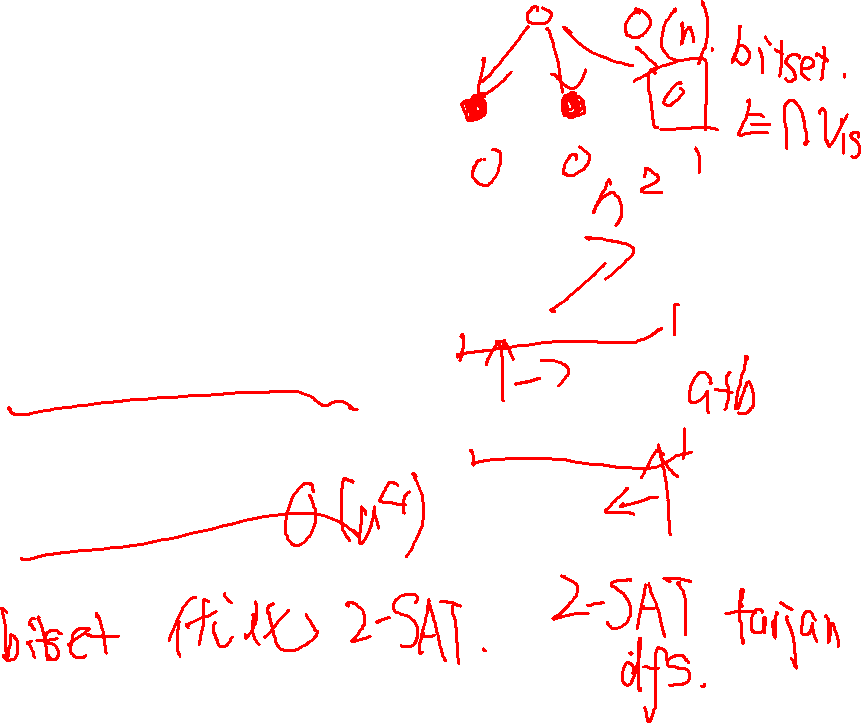 O(n). bitset.
0
E ∩ Vis
0 0 1
n²
a+b
O(n⁴)
bitset 优化 2-SAT. 2-SAT tarjan
dfs.